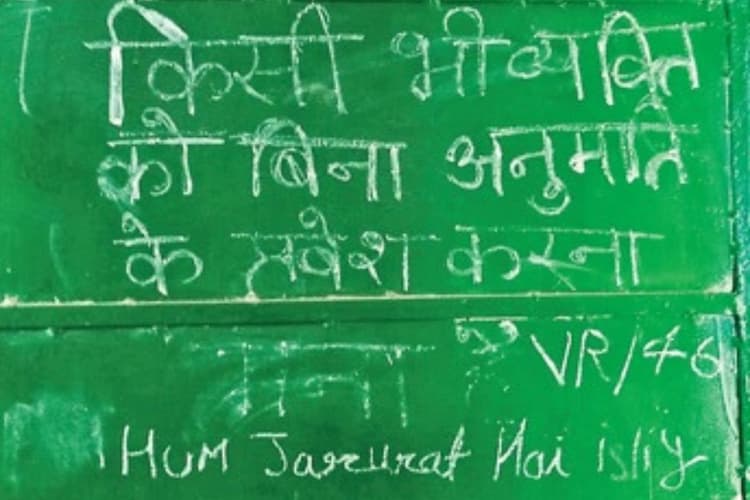 किसी भी व्यक्ति
को बिना अनुमति
के प्रवेश करना
मना है VR/46
HUM Jarrurat Hai isliy